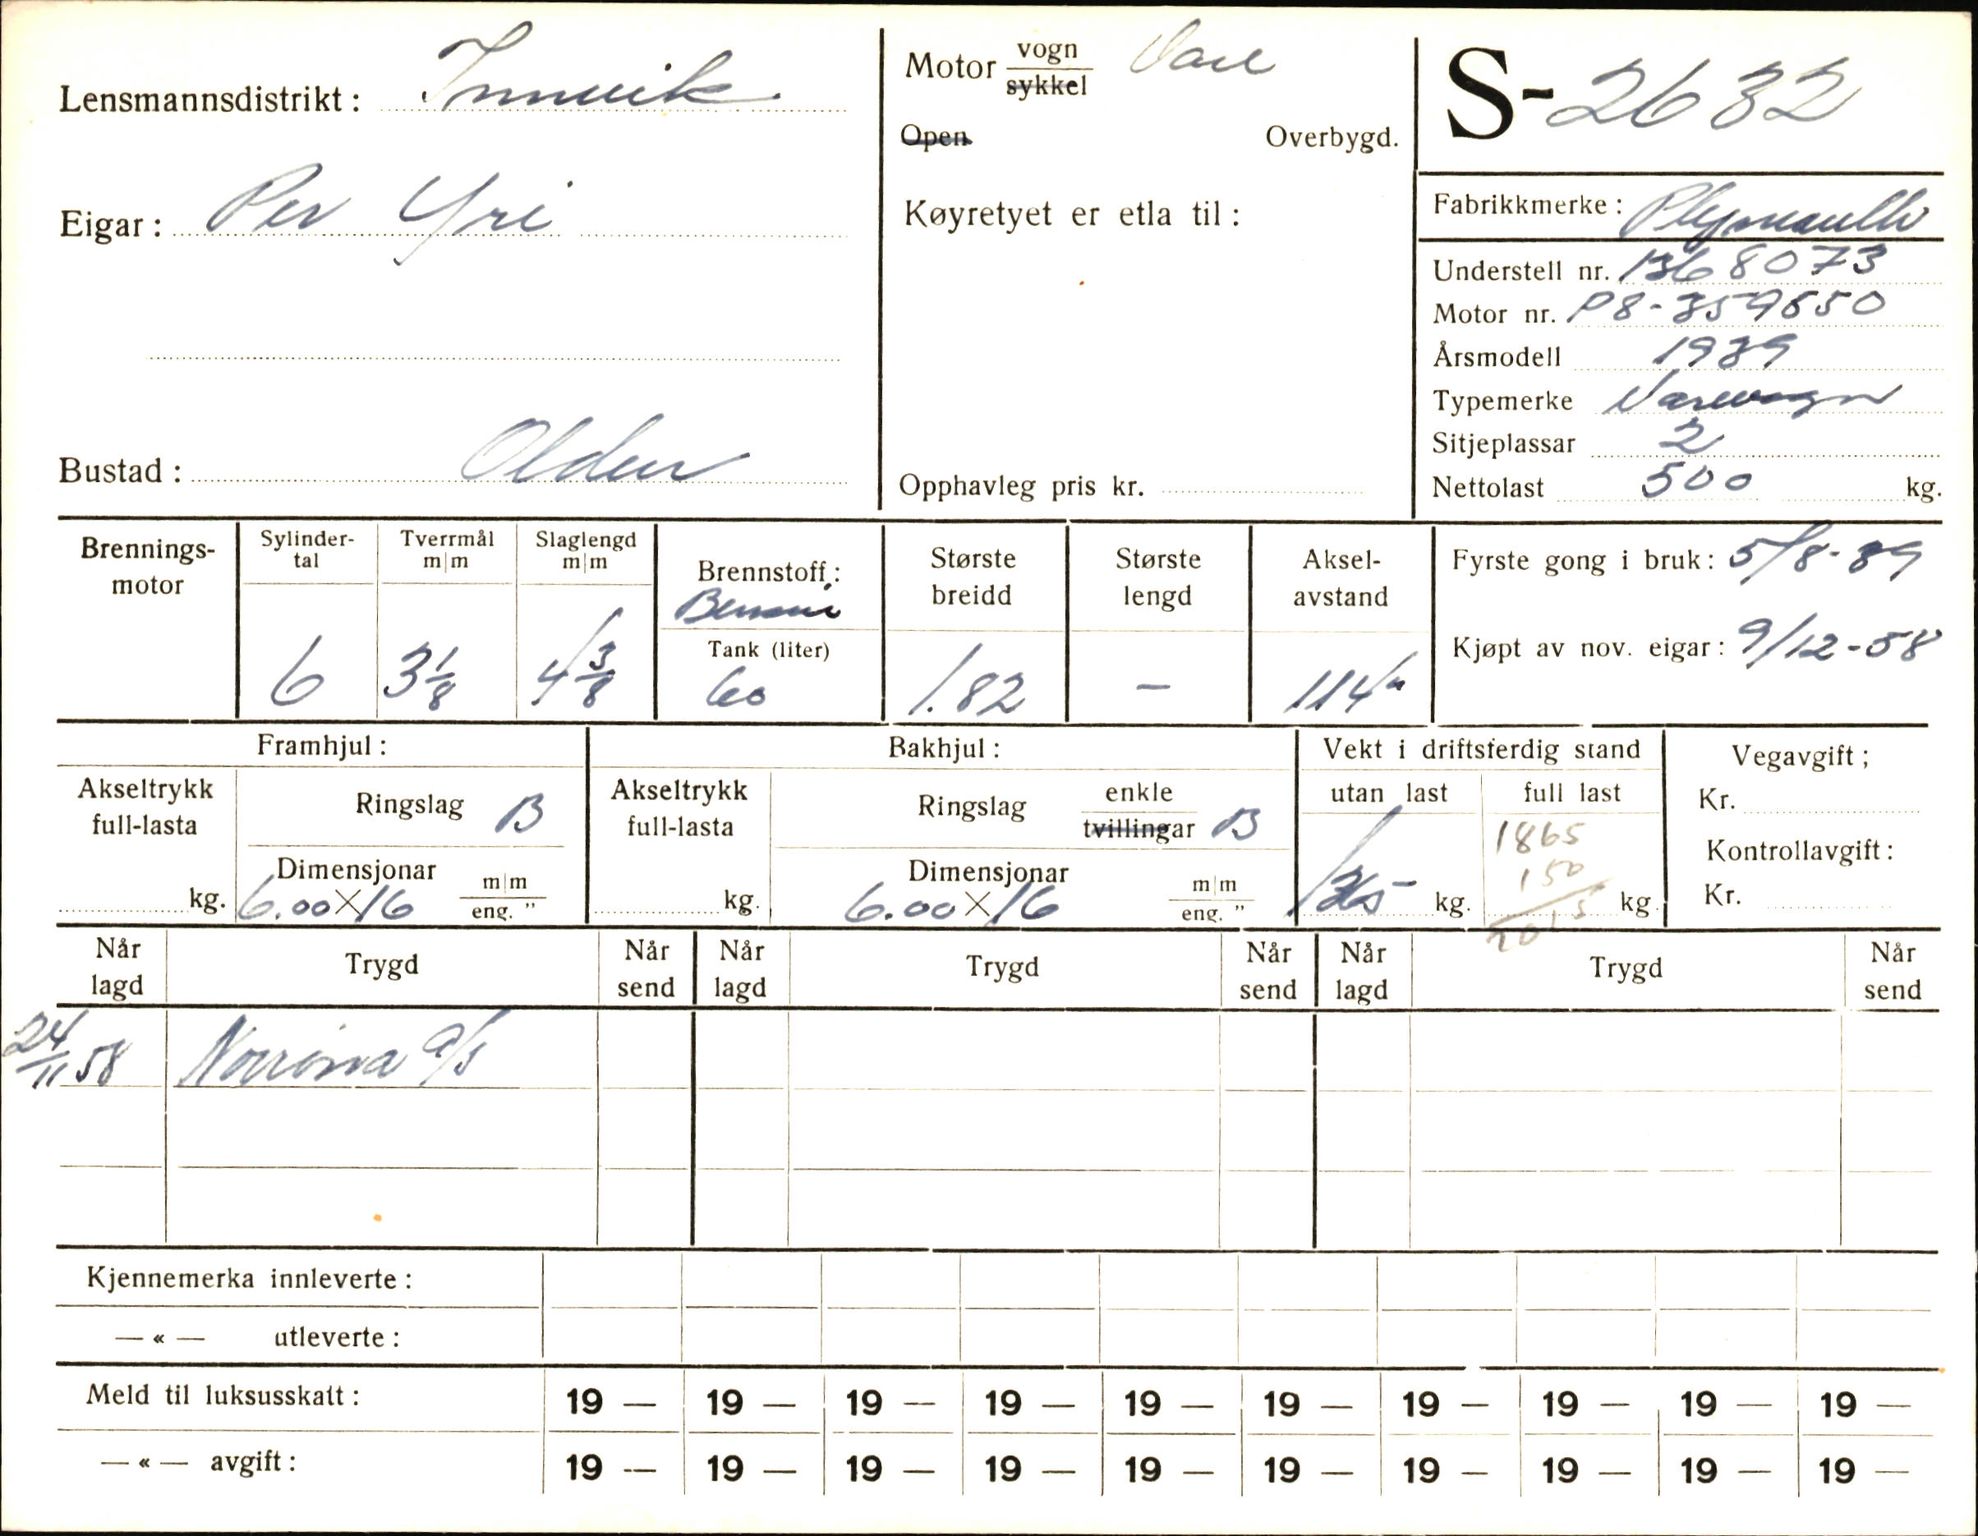 Lensmannsdistrikt: Innvik
Eigar: Per Yri
Bustad: Olden
Motor vogn
sykkel
Vare
Open Overbygd.
Køyretyet er etla til:
Opphavleg pris kr.
S-2632
Fabrikkmerke: Plymouth
Understell nr. 1368073
Motor nr. P8-359650
Årsmodell 1939
Typemerke Varevogn
Sitjeplassar 2
Nettolast 500 kg.
Brennings-
motor
Sylinder-
tal
6
Tverrmål
m|m
3 1/8
Slaglengd
m|m
4 3/8
Brennstoff:
Bensin
Tank (liter)
60
Største
breidd
1.82
Største
lengd
—
Aksel-
avstand
114"
Fyrste gong i bruk: 5/8-39
Kjøpt av nov. eigar: 9/12-58
Framhjul:
Akseltrykk
full-lasta
kg.
Ringslag B
Dimensjonar
6.00 X 16 m|m
eng. "
Bakhjul:
Akseltrykk
full-lasta
kg.
Ringslag enkle
tvillingar B
Dimensjonar
6.00 X 16 m|m
eng. "
Vekt i driftsferdig stand
utan last
kg.
full last
1865
150
2015 kg
Vegavgift;
Kr.
Kontrollavgift:
Kr.
Når
lagd
Trygd
Når
send
Når
lagd
Trygd
Når
send
Når
lagd
Trygd
Når
send
24/11 58 Norrøna a/s
Kjennemerka innleverte:
— « — utleverte:
Meld til luksusskatt: 19 — 19 — 19 — 19 — 19 — 19 — 19 — 19 — 19 — 19 —
— « — avgift: 19 — 19 — 19 — 19 — 19 — 19 — 19 — 19 — 19 — 19 —